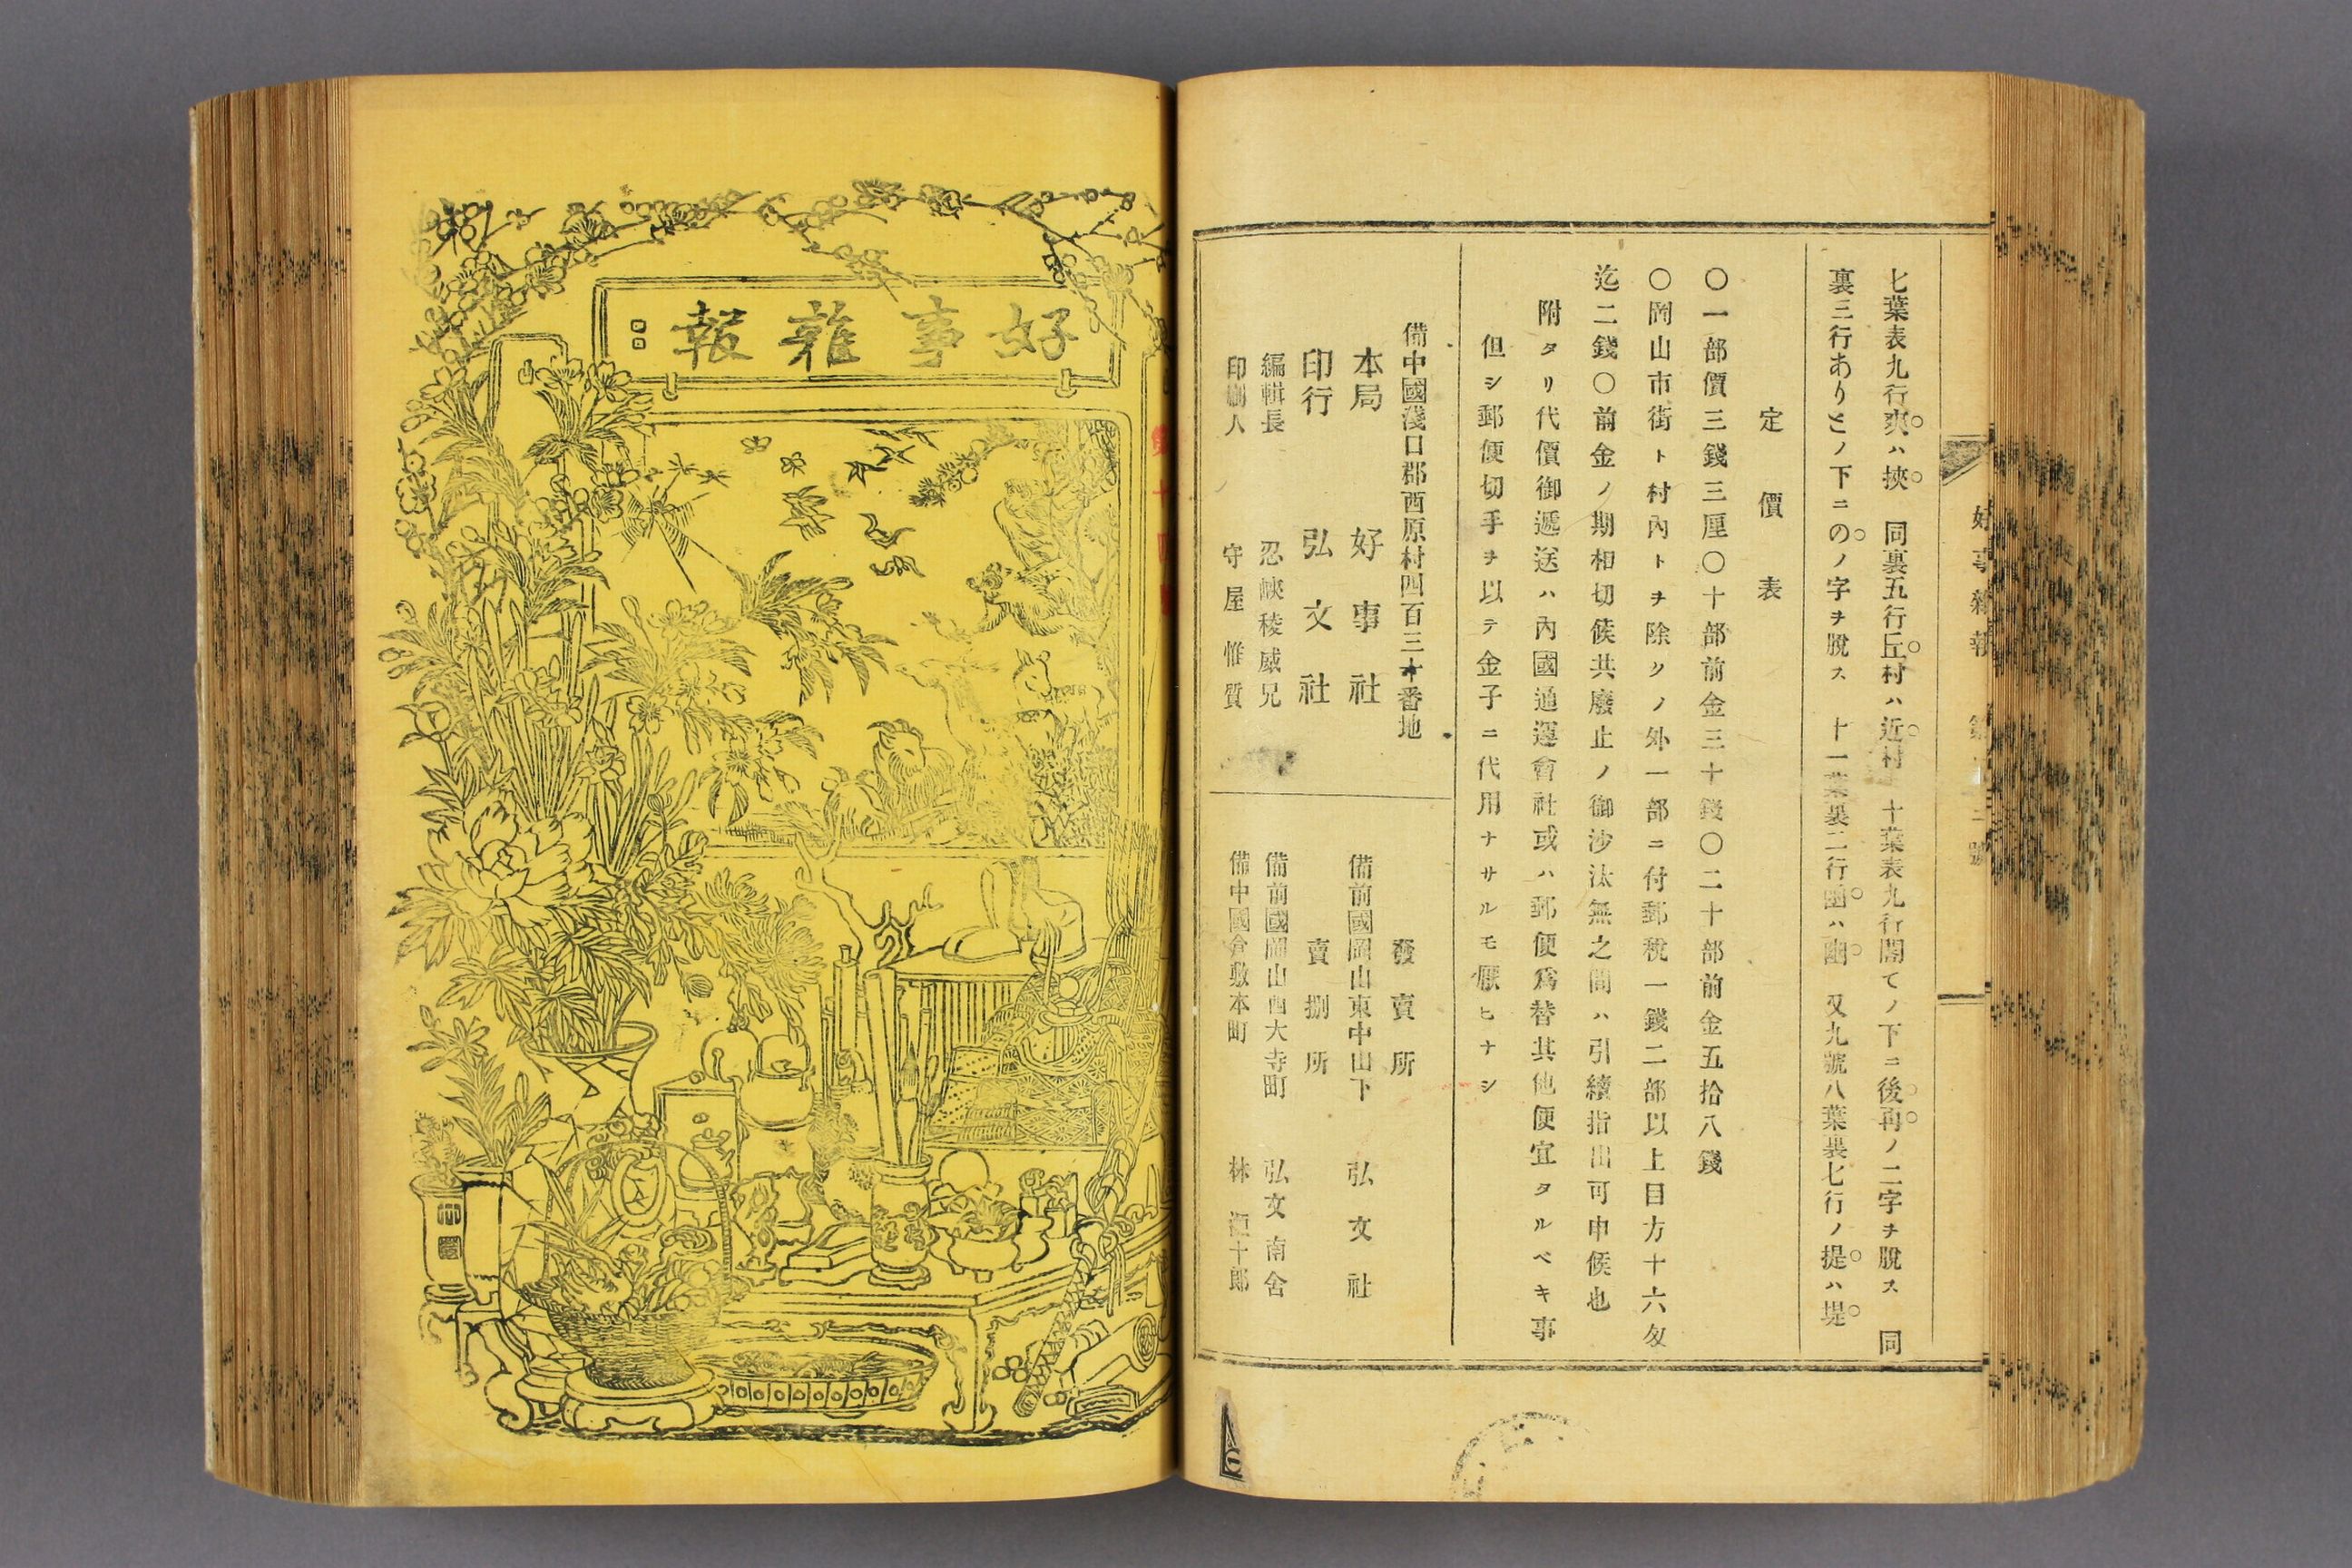 好事雜報
七葉表九行爽ハ挾 同裏五行丘村ハ近村 十葉表九行闇てノ下ニ後再ノ二字ヲ脫ス 同
裏三行ありとノ下ニのノ字ヲ脫ス 十一葉裏二行ハ 又九號八葉裏七行ノ提ハ堤
定價表
〇一部價三錢三厘〇十部前金三十錢〇二十部前金五拾八錢
〇岡山市街ト村內トヲ除クノ外一部ニ付郵稅一錢二部以上目方十六匁
迄二錢〇前金ノ期相切候共廢止ノ御沙汰無之間ハ引續指出可申候也
附タリ代價御遞送ハ內國通運會社或ハ郵便爲替其他便宜タルベキ事
但シ郵便切手ヲ以テ金子ニ代用ナサルモ厭ヒナシ
備中國淺口郡酉原村四百三十番地
本局 好事社
印行 弘文社
編輯長 忍峽稜威兄
印刷人 守屋惟質
發賣所
備前國岡山東中山下 弘文社
賣捌所
備前國岡山西大寺町 弘文南舍
備中國倉敷本町 林 十郎
好事雜報
第十四號